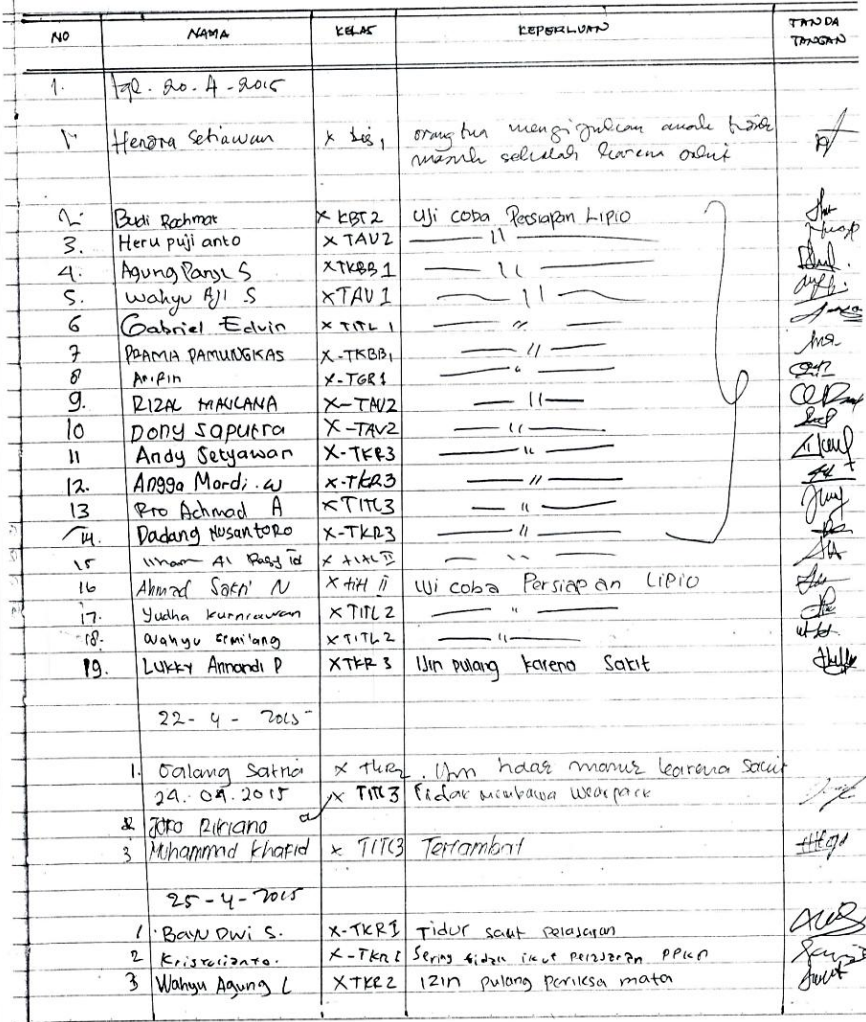 NO NAMA KELAS KEPERLUAN TANDA TANGAN
1. Tgl. 20.4-2015
1. Hendra Setiawan X orang tua anak
masuk sekolah karena
2. Budi Rochmat X KBT2 Uji coba Persiapan LIPIO
3. Heru puji anto X TAV2 — 11 —
4. Agung Panji S X TKBB 1 — 11 —
5. Wahyu Aji S X TAV 1 — 11 —
6 Gabriel Edvin X TITL 1 — 11 —
7 PRAMA PAMUNGKAS X-TKBB1 — 11 —
8 Aripin X-TGR1 — 11 —
9. RIZAL MAULANA X-TAV2 — 11 —
10 Dony Saputra X-TAV2 — 11 —
11 Andy Setyawan X-TKR3 — 11 —
12. Angga Mardi. W X-TKR3 — 11 —
13 Rio Achmad A X TITL3 — 11 —
14. Dadang Nusantoro X-TKR3 — 11 —
15 Ilham Al Rasyid X TITL II — 11 —
16 Ahmad Safri' N X TITL II Uji coba Persiapan LIPIO
17. Yudha Kurniawan X TITL2 — 11 —
18. Wahyu X TITL2 — 11 —
19. Lukky Armandi P X TKR 3 Ijin pulang karena Sakit
22-4-2015
1. Galang Satria X TKR2 masuk karena sakit
24.04.2015 X TITL3 Tidak membawa wearpack
2 Joko
3 Muhammad Khafid X TITL3 Terlambat
25-4-2015
1 BAYU DWI S. X-TKR1 Tidur saat pelajaran
2 Kristelianto. X-TKR1 Sering tidak ikut pelajaran PPKN
3 Wahyu Agung L X TKR2 Izin pulang periksa mata